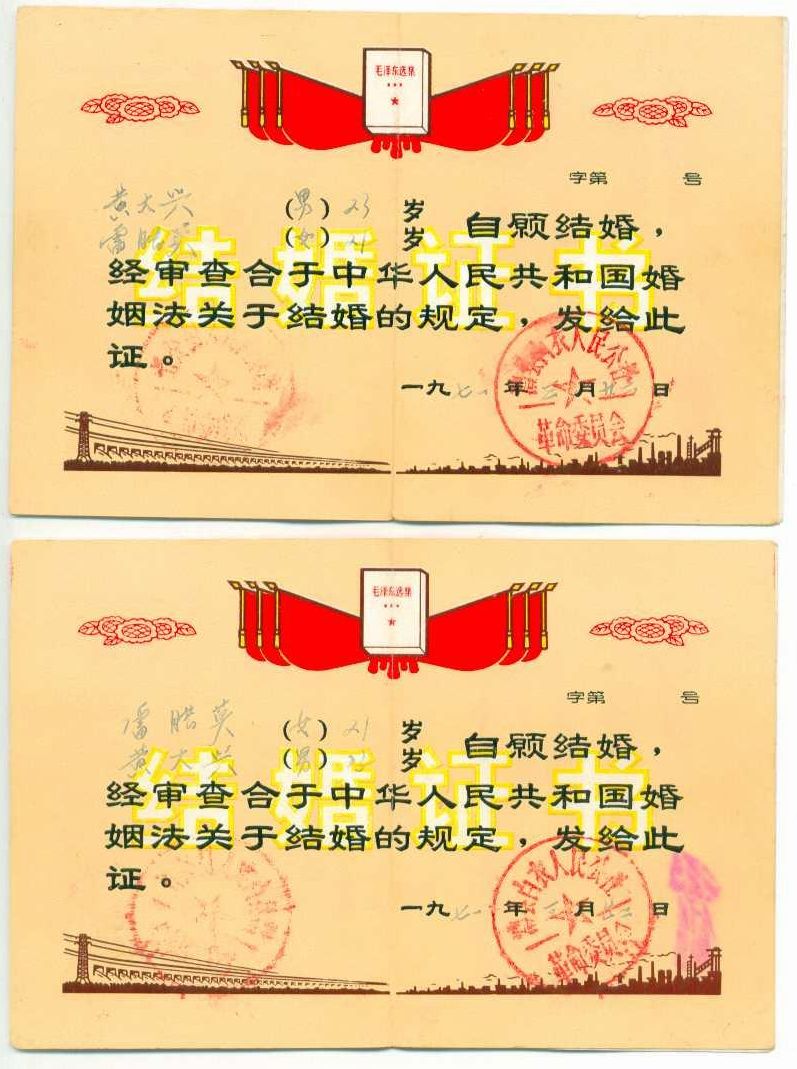 毛泽东选集
字第 号
黄大兴 (男) 23 岁
雷 英 (女) 21 岁
自顾结婚，
结婚证书
经审查合于中华人民共和国婚
姻法关于结婚的规定，发给此
证。
一九七一年三月廿二日
白衣人民公社
革命委员会
毛泽东选集
字第 号
雷 英 (女) 21 岁
黄大兴 (男) 岁
自顾结婚，
结婚证书
经审查合于中华人民共和国婚
姻法关于结婚的规定，发给此
证。
一九七一年三月廿二日
白衣人民公社
革命委员会